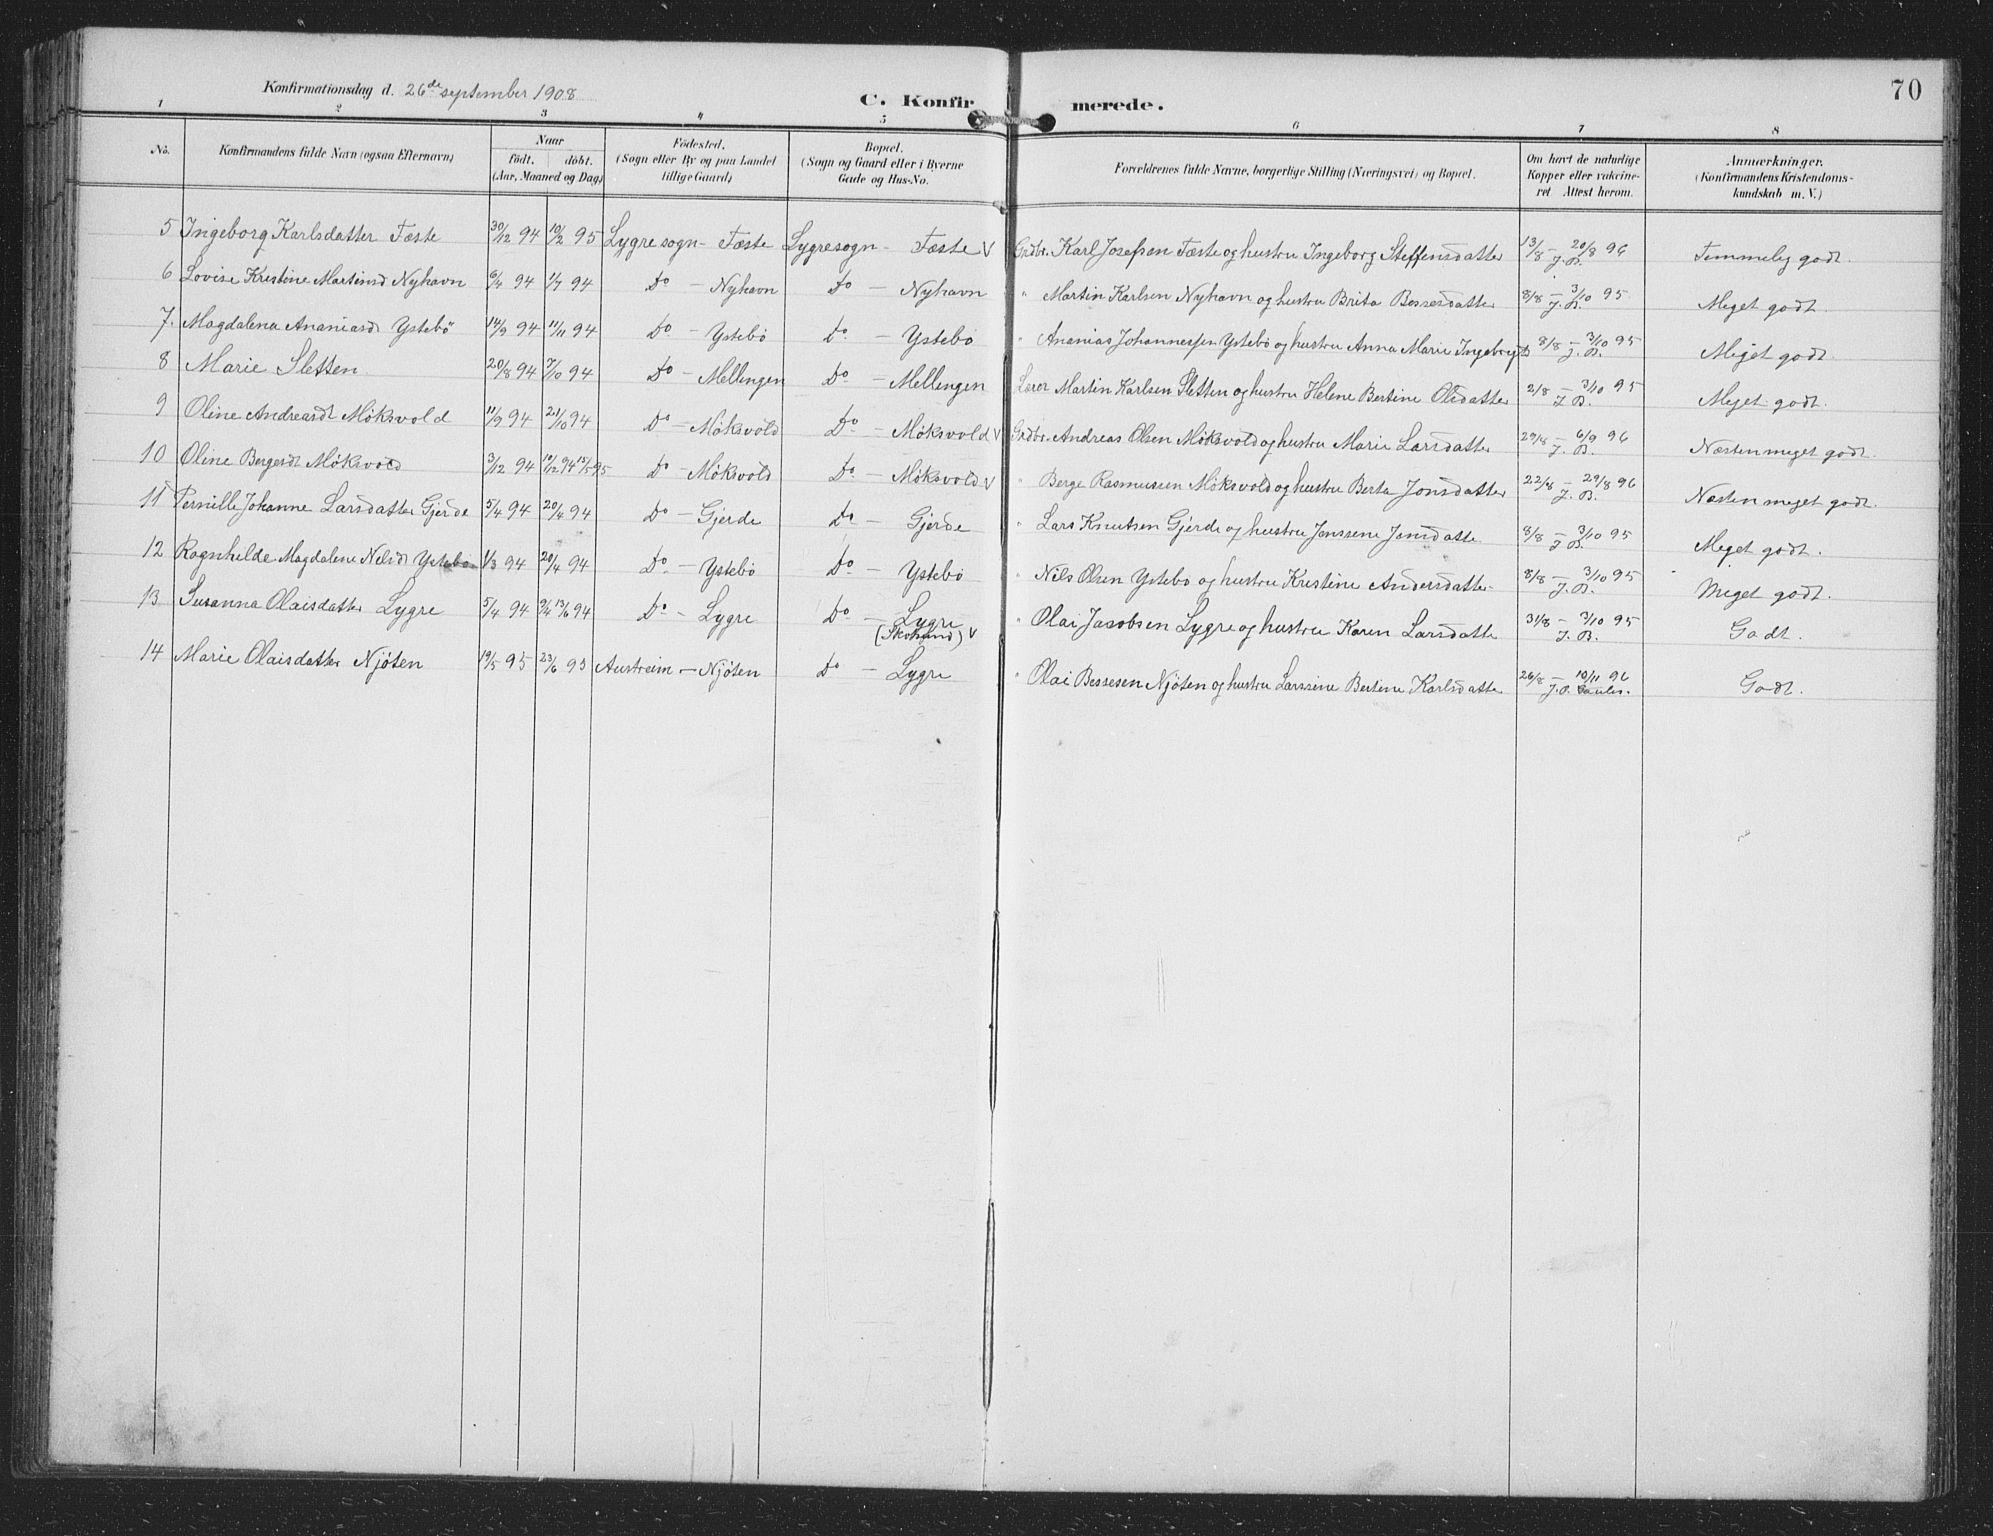 70
Konfirmationsdag d. 26de september 1908
C. Konfirmerede.
1 2 3 4 5 6 7 8
No. Konfirmandens fulde Navn (ogsaa Efternavn) Naar födt. döbt. (Aar, Maaned og Dag) Födested. (Sogn eller By og paa Landet tillige Gaard) Bopæl. (Sogn og Gaard eller i Byerne Gade og Hus-No. Forældrenes fulde Navne, borgerlige Stilling (Næringsvei) og Bopæl. Om havt de naturlige Kopper eller vakcineret Attest herom. Anmærkninger. (Konfirmandens Kristendomskundskab m. V.)
5 Ingeborg Karlsdatter Fæste 30/12 94 10/2 95 Lygre sogn - Fæste Lygresogn - Fæste v Grdbr. Karl Josefsen Fæste og hustru Ingeborg Steffensdatter 13/8 – 20/8 96 J. B. Temmelig godt.
6 Lovise Kristine Martinsd Nyhavn 6/4 94 1/7 94 Do – Nyhavn Do – Nyhavn " Martin Karlsen Nyhavn og hustru Brita Bessesdatter 8/8 – 3/10 95 J. B. Meget godt.
7. Magdalena Ananiasd Ystebö 14/9 94 11/11 94 Do – Ystebö Do – Ystebö " Ananias Johannessen Ystebö og hustru Anna Marie Ingebrigtd 8/8 – 3/10 95 J. B. Meget godt.
8 Marie Sletten 20/8 94 7/10 94 Do – Mellingen Do – Mellingen Lærer Martin Karlsen Sletten og hustru Helene Bertine Olsdatter 2/8 – 3/10 95 J. B. Meget godt.
9 Oline Andreasdt Møksvold 11/9 94 21/10 94 Do – Møksvold Do – Møksvold v Grdbr. Andreas Olsen Møksvold og hustru Marie Larsdatter 29/8 – 6/9 96 J. B. Næsten meget godt.
10 Oline Bergesdt Møksvold 3/12 94 10/12 94 15/5 95 Do – Møksvold Do – Møksvold v " Berge Rasmussen Møksvold og hustru Berta Jonsdatter 22/8 – 29/8 96 J. B. Næsten meget godt.
11 Pernille Johanne Larsdatter Gjerde 5/4 94 20/4 94 Do – Gjerde Do – Gjerde " Lars Knutsen Gjerde og hustru Jenssene Jonsdatte 8/8 – 3/10 95 J. B. Meget godt.
12 Ragnhilde Magdalene Nelsd Ystebö 1/3 94 20/4 94 Do – Ystebö Do – Ystebö " Nils Olsen Ystebö og hustru Kristine Andersdatter 8/8 – 3/10 95 J. B. Meget godt.
13 Susanna Olaisdatter Lygre 5/4 94 9/4 13/6 94 Do – Lygre Do – Lygre v " Olai Jacobsen Lygre og hustru Karen Larsdatte 31/8 – 3/10 95 J. B. Godt.
14 Marie Olaisdatter Njöten 19/5 95 23/6 95 Austreim – Njöten Do – Lygre " Olai Bessesen Njöten og hustru Larssine Bertine Karlsdatte 26/8 – 10/11 96 Godt.